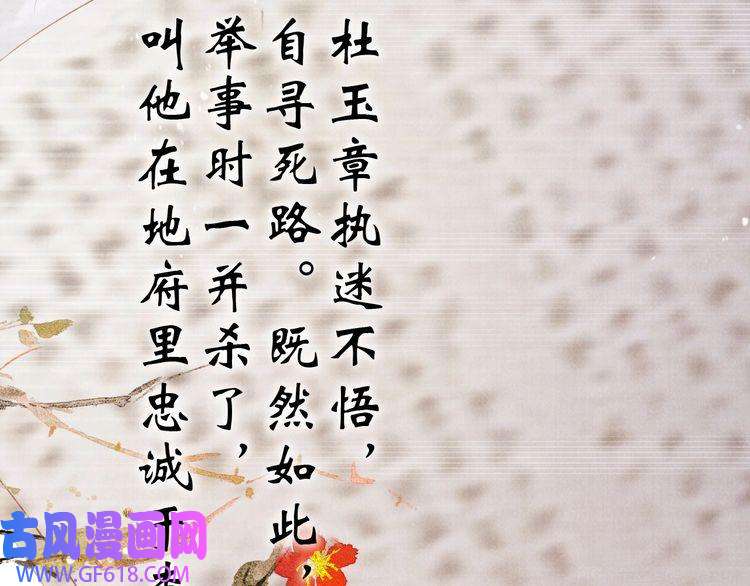 杜玉章执迷不悟，
自寻死路。既然如此，
举事时一并杀了，
叫他在地府里忠诚于
古风漫画网
WWW.GF618.COM